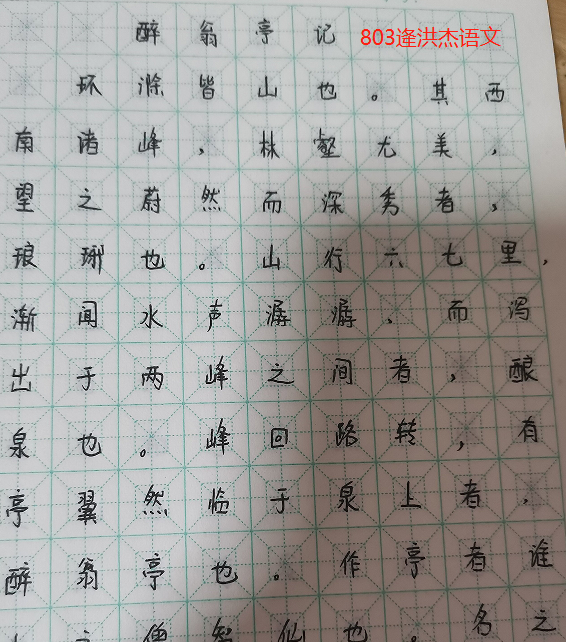 醉翁亭记 803逄洪杰语文
环滁皆山也。其西
南诸峰，林壑尤美，
望之蔚然而深秀者，
琅琊也。山行六七里，
渐闻水声潺潺、而泻
出于两峰之间者，酿
泉也。峰回路转，有
亭翼然临于泉上者，
醉翁亭也。作亭者谁
之僧智仙也。名之